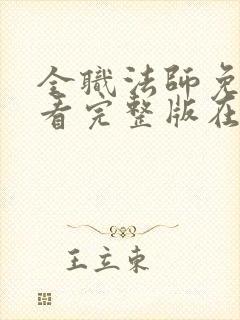 全職法師免
看完整版在
王立東